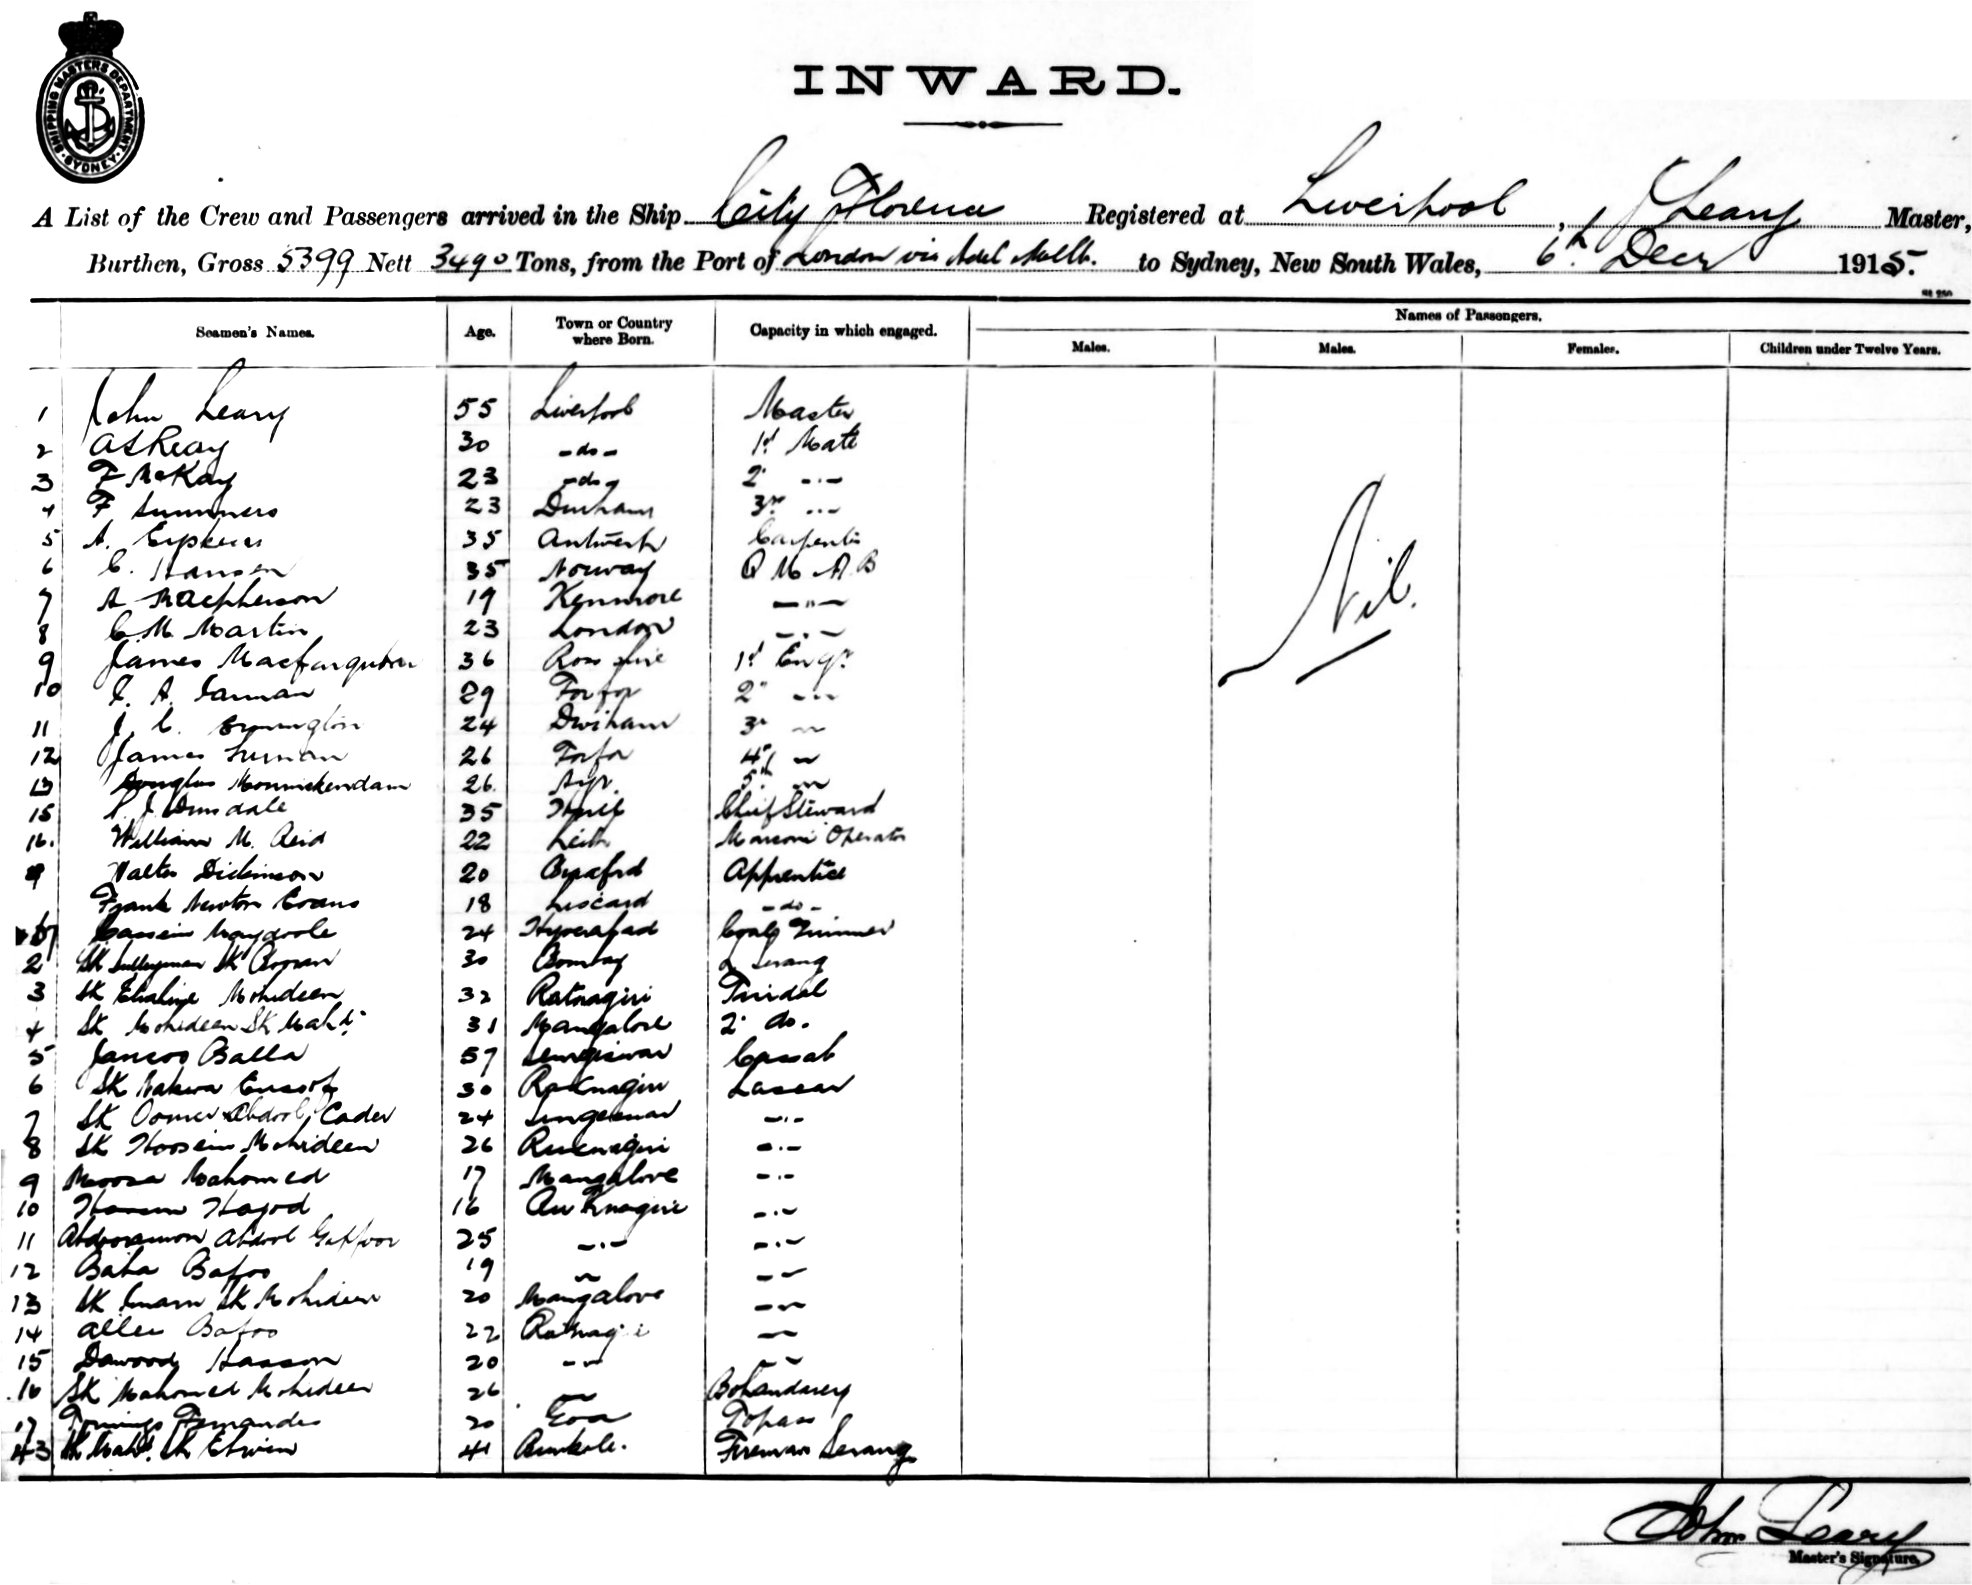 SHIPPING MASTERS DEPARTMENT. SYDNEY
INWARD.
A List of the Crew and Passengers arrived in the Ship City Florence Registered at Liverpool, J Leary Master,
Burthen, Gross 5399 Nett 3490 Tons, from the Port of London via Adel Melb. to Sydney, New South Wales, 6th Decr 1915.
Seamen's Names. Age. Town or Country where Born. Capacity in which engaged. Names of Passengers.
Males. Males. Females. Children under Twelve Years.
1 John Leary 55 Liverpool Master
2 30 -do- 1st Mate
3 F McKay 23 -do- 2"
4 F Summers 23 Durham 3rd
5 A. 35 Antwerp Carpenter
6 C. Hansen 35 Norway Q M A.B
7 A Macpherson 19 Kenmore -"-
8 C. M. Martin 23 London -"-
9 James Macfarquhar 36 Ross shire 1st Engr
10 29 Forfar 2"
11 J. C. 24 Durham 3"
12 James 26 Forfar 4th
13 Douglas 26 Ayr. 5th
15 J. Dunsdale 35 Hull Chief Steward
16. William M. Reid 22 Leith Marconi Operator
Walter Dickinson 20 Apprentice
Frank Newton Evans 18 Liscard -do-
24 Coal Trimmer
2 Sk 30 Bombay Serang
3 Sk Mohideen 32 Ratnagiri Tindal
4 Sk Mohideen Sk Mahd. 31 Mangalore 2" do.
5 Balla 57 Cassab
6 Sk 30 Lascar
7 Sk Oomer Abdool Cader 24 -"-
8 Sk Hoosein Mohideen 26 -"-
9 Moosa Mahomed 17 Mangalore -"-
10 16 -"-
11 Abdool Gaffoor 25 -"- -"-
12 Baba Bafoo 19 " -"-
13 Sk Imam Sk Mohideen 20 Mangalore -"-
14 Bafoo 22 Ratnagiri -"-
15 Dawood Hasson 20 -"- -"-
16 Sk Mahomed Mohideen 26 -"- Bohandarey
17 Fernandes 20 Goa Topass
43 Sk Mahd. Sk 41 Fireman Serang
Nil.
John Leary
Master's Signature.